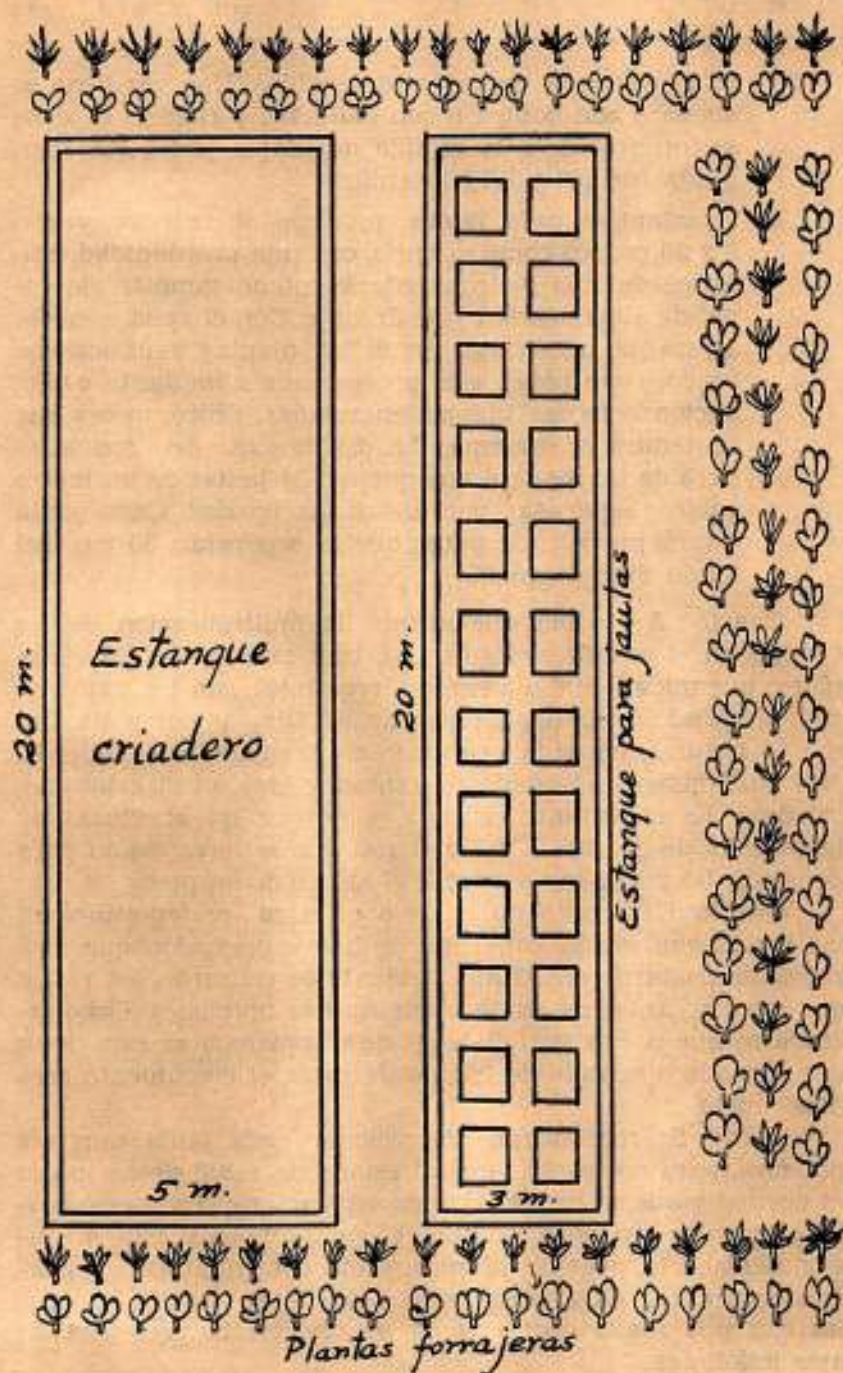 20 m.
Estanque
criadero
5 m.
20 m.
Estanque para jaulas
3 m.
Plantas forrajeras